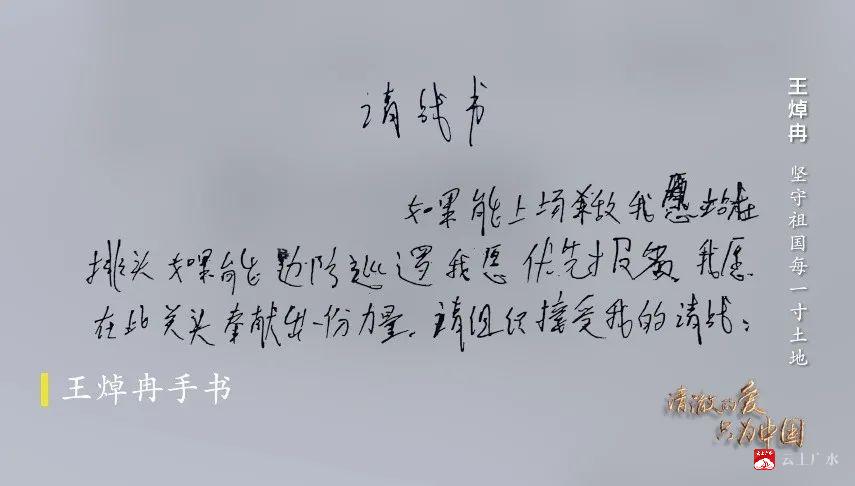 请战书
如果能上场杀敌我愿站在
排头如果能边防巡逻我愿优先报名。我愿
在此关头奉献出一份力量。请组织接受我的请战。
王焯冉手书
王焯冉 坚守祖国每一寸土地
清澈的爱
只为中国
云上广水